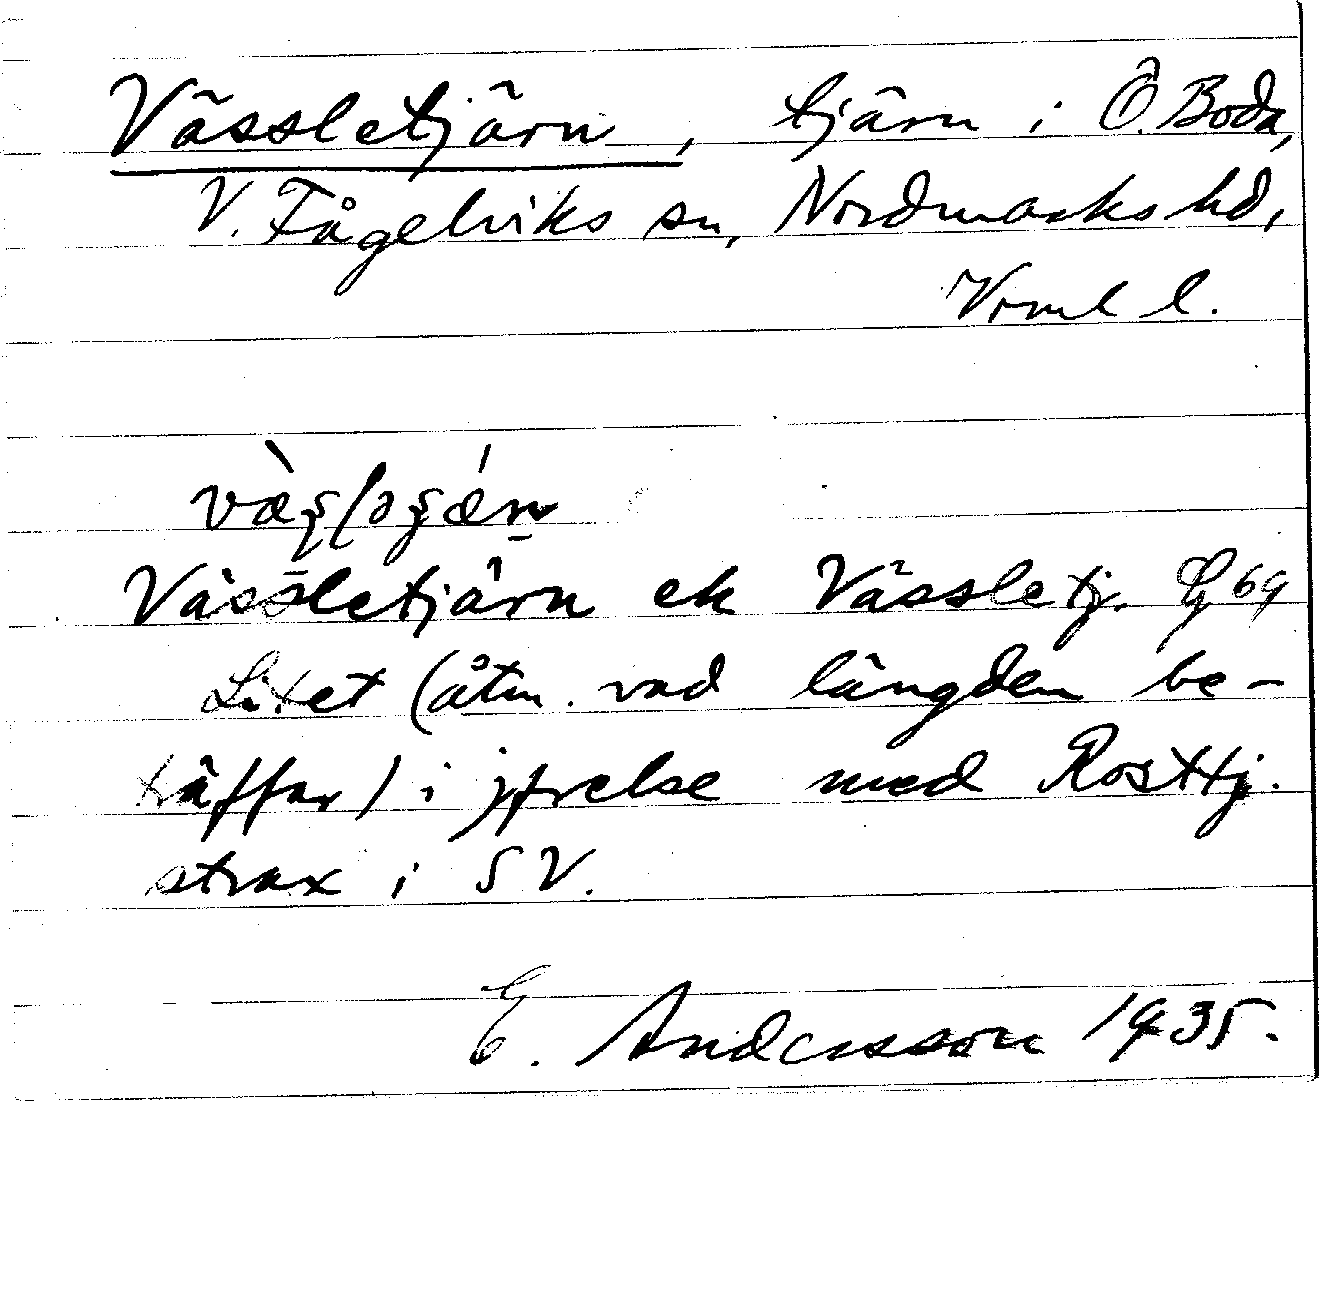 Vässletjärn, tjärn i Ö. Boda,
V. Fågelviks sn, Nordmarks hd,
Vrml l.
Vässletjärn ek Vässletj. G 69
Litet (åtm. vad längden be-
träffar) i jfrelse med Rosttj.
strax i SV.
E. Andersson 1935.